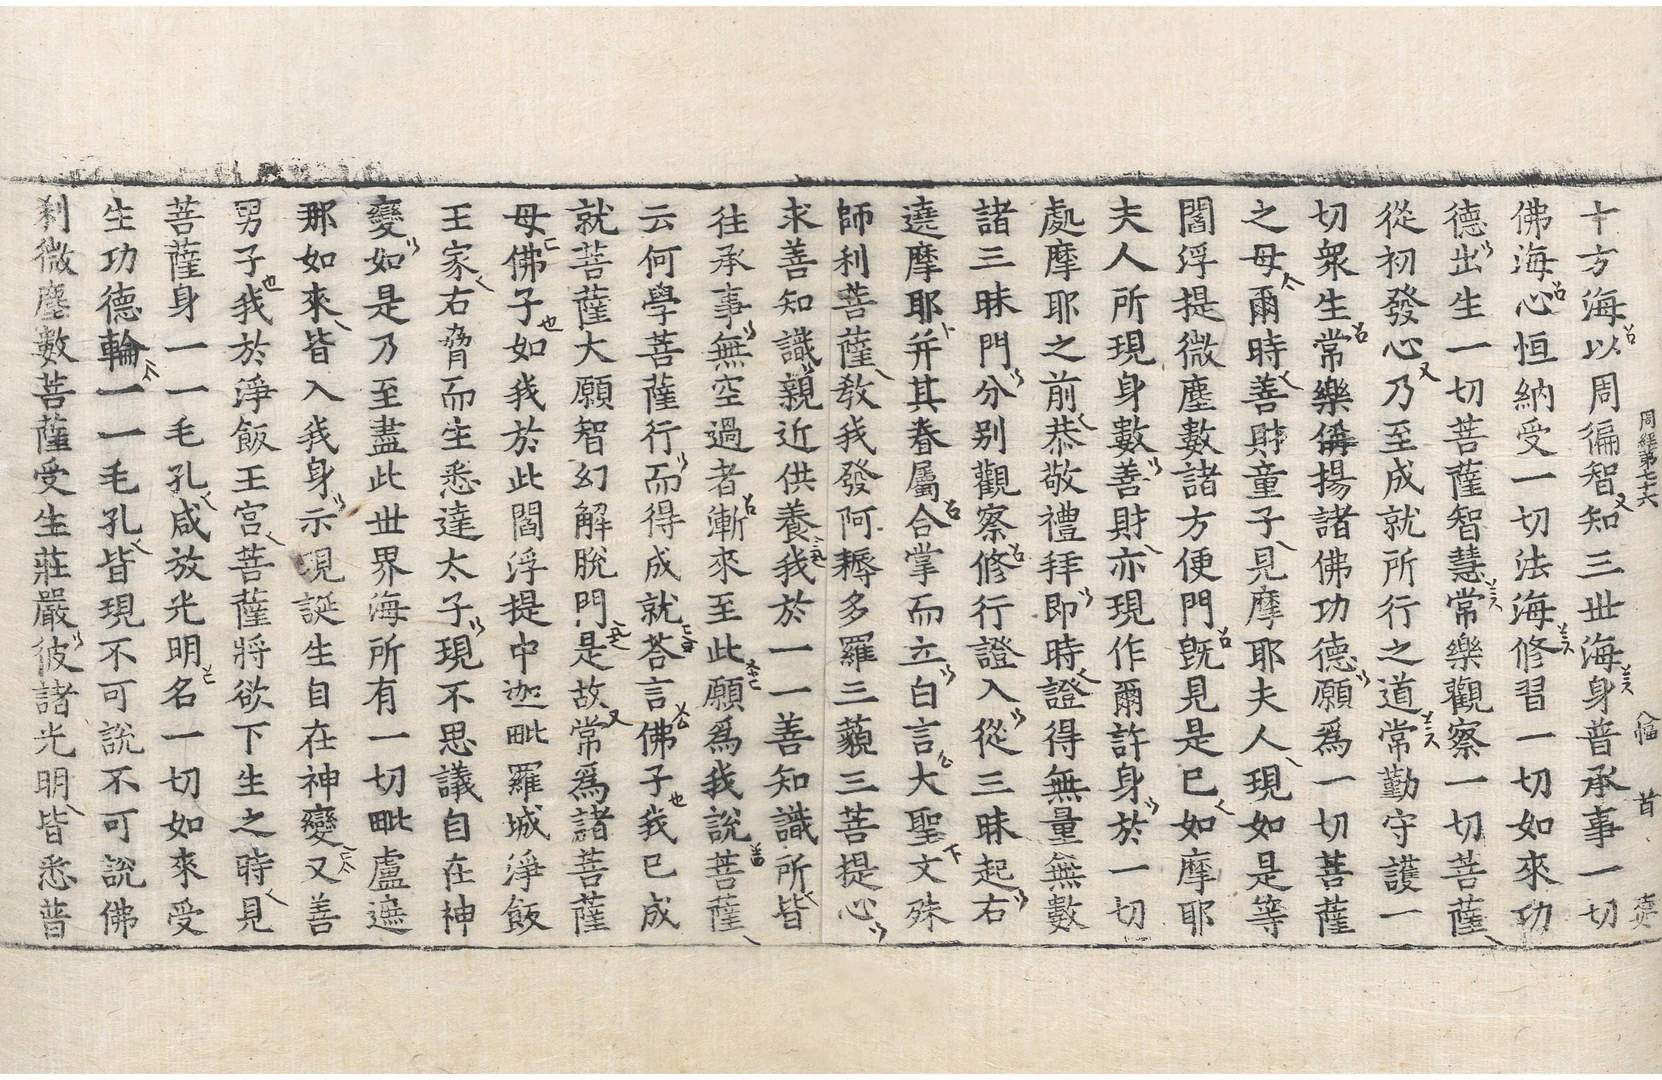 周經第七十六 八幅 首
十方海以周徧智知三世海身普承事一切
佛海心恒納受一切法海修習一切如來功
德出生一切菩薩智慧常樂觀察一切菩薩
從初發心乃至成就所行之道常勤守護一
切衆生常樂稱揚諸佛功德願爲一切菩薩
之母爾時善財童子見摩耶夫人現如是等
閻浮提微塵數諸方便門旣見是已如摩耶
夫人所現身數善財亦現作爾許身於一切
處摩耶之前恭敬禮拜即時證得無量無數
諸三昧門分別觀察修行證入從三昧起右
遶摩耶并其眷屬合掌而立白言大聖文殊
師利菩薩教我發阿耨多羅三藐三菩提心
求善知識親近供養我於一一善知識所皆
往承事無空過者漸來至此願爲我說菩薩
云何學菩薩行而得成就荅言佛子我已成
就菩薩大願智幻解脫門是故常爲諸菩薩
母佛子如我於此閻浮提中迦毗羅城淨飯
王家右脅而生悉達太子現不思議自在神
變如是乃至盡此世界海所有一切毗盧遮
那如來皆入我身示現誕生自在神變又善
男子我於淨飯王宮菩薩將欲下生之時見
菩薩身一一毛孔咸放光明名一切如來受
生功德輪一一毛孔皆現不可說不可說佛
刹微塵數菩薩受生莊嚴彼諸光明皆悉普